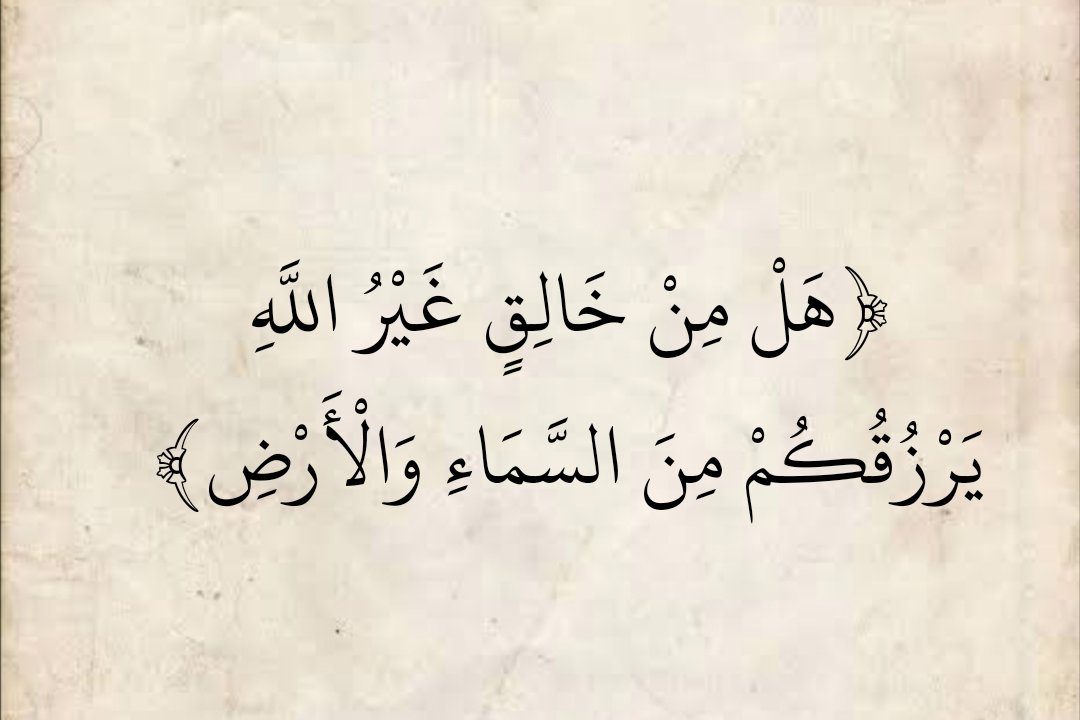 ﴿هَلْ مِنْ خَالِقٍ غَيْرُ اللَّهِ
يَرْزُقُكُمْ مِنَ السَّمَاءِ وَالْأَرْضِ﴾